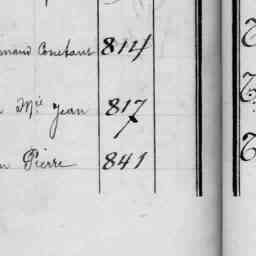 Constant 814
Mie Jean 817
Pierre 841